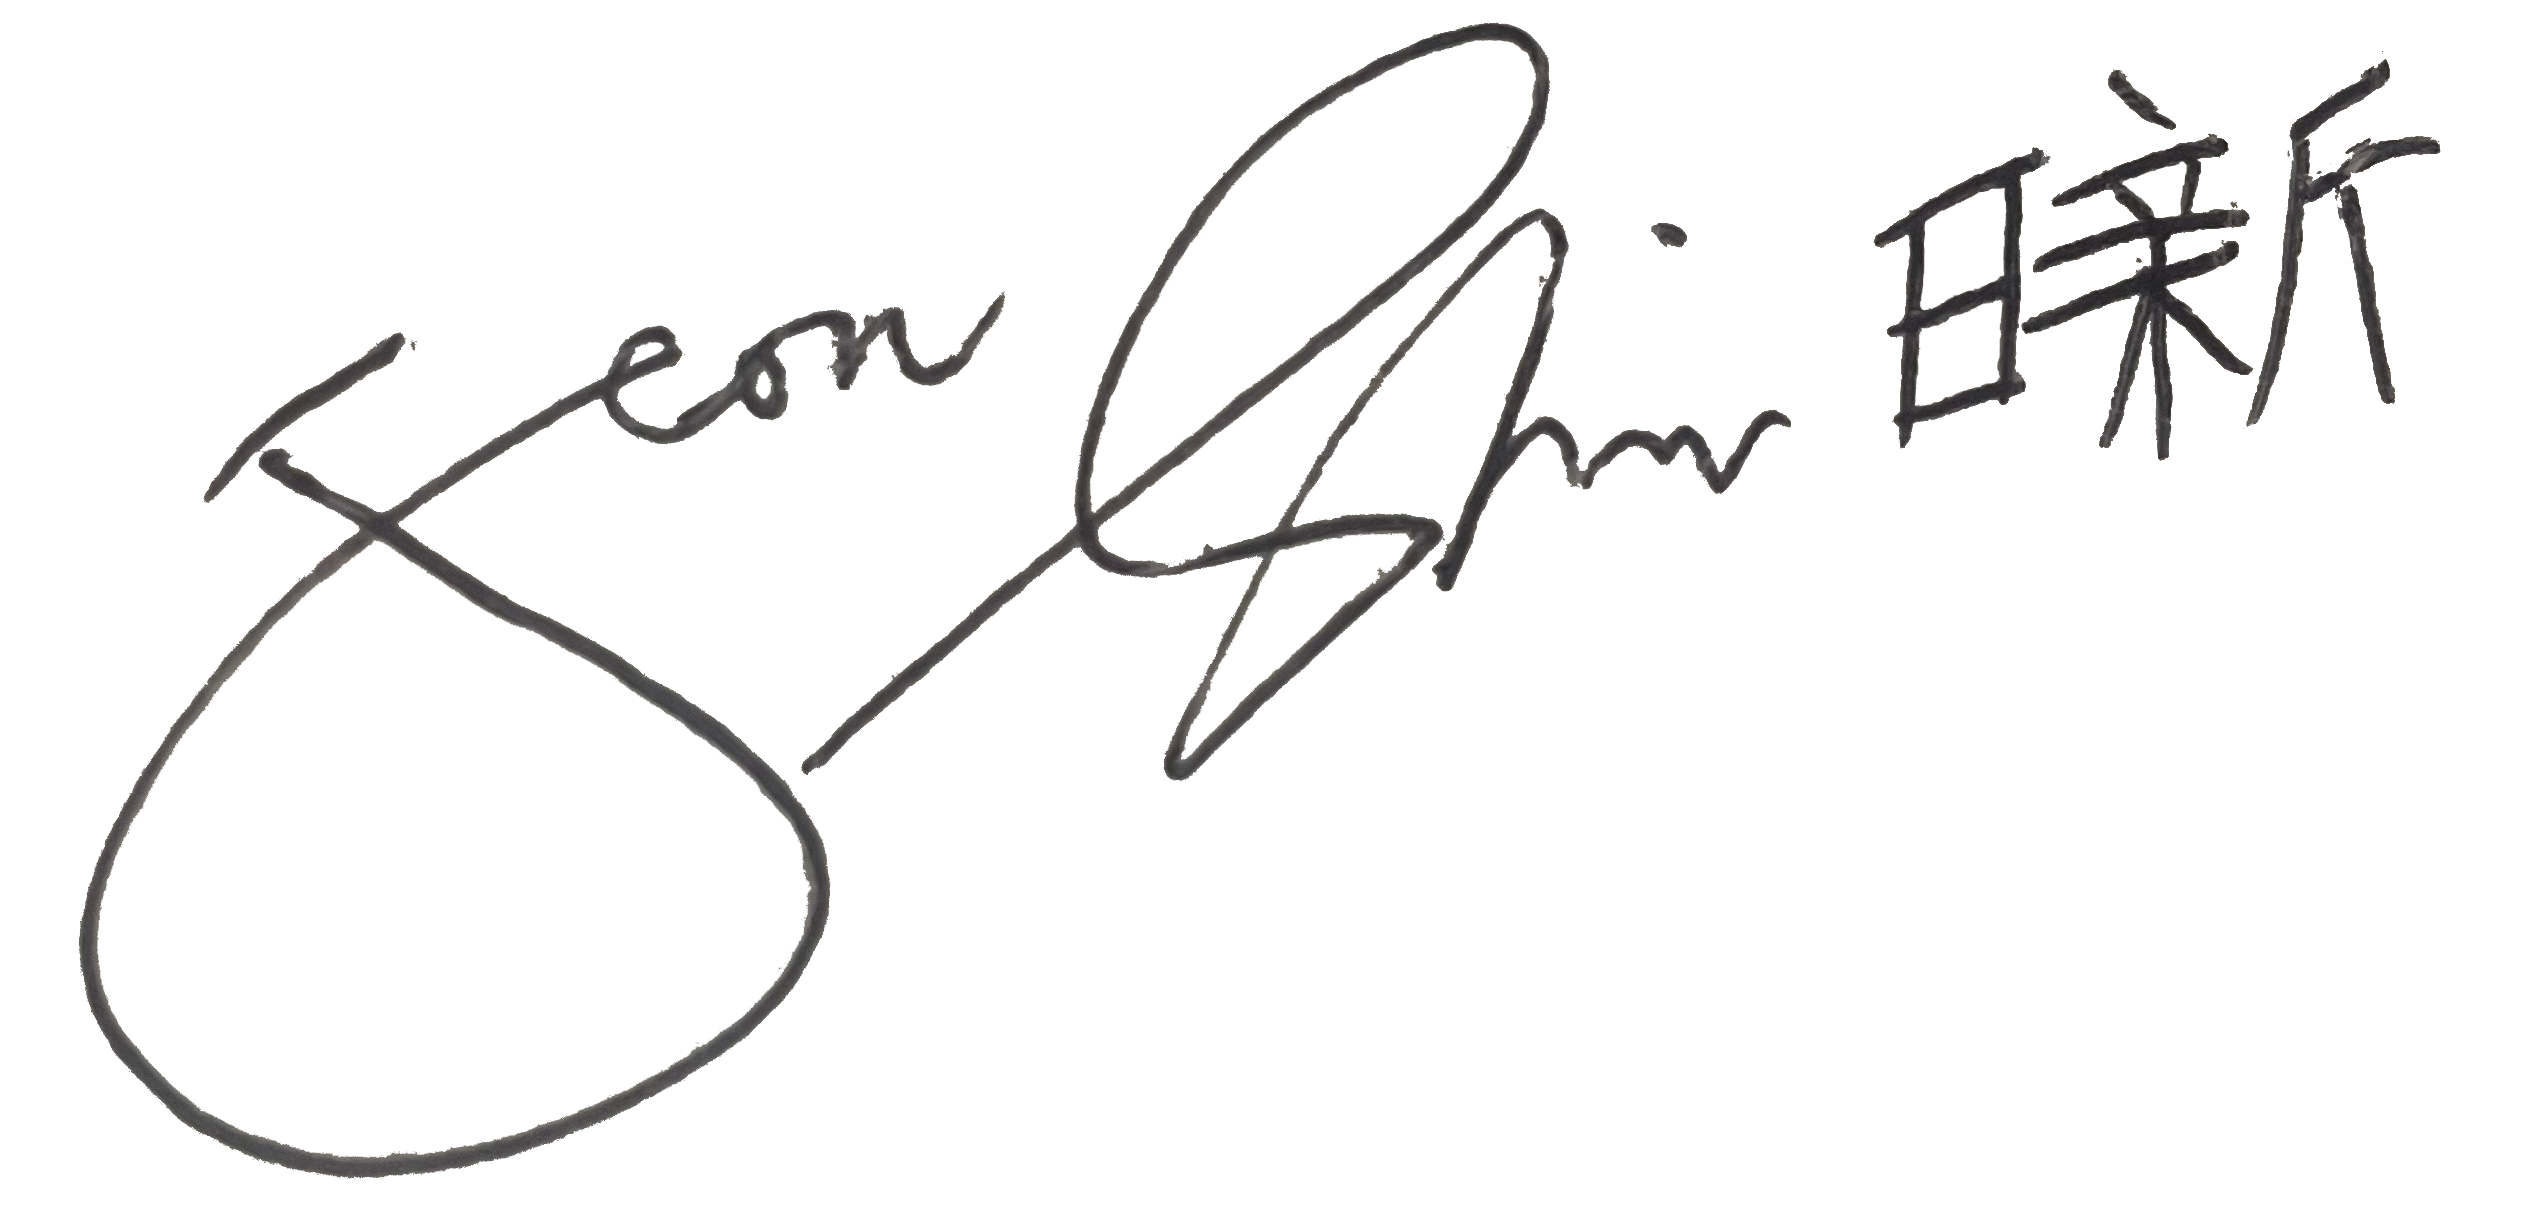 Jeon Shin 日新